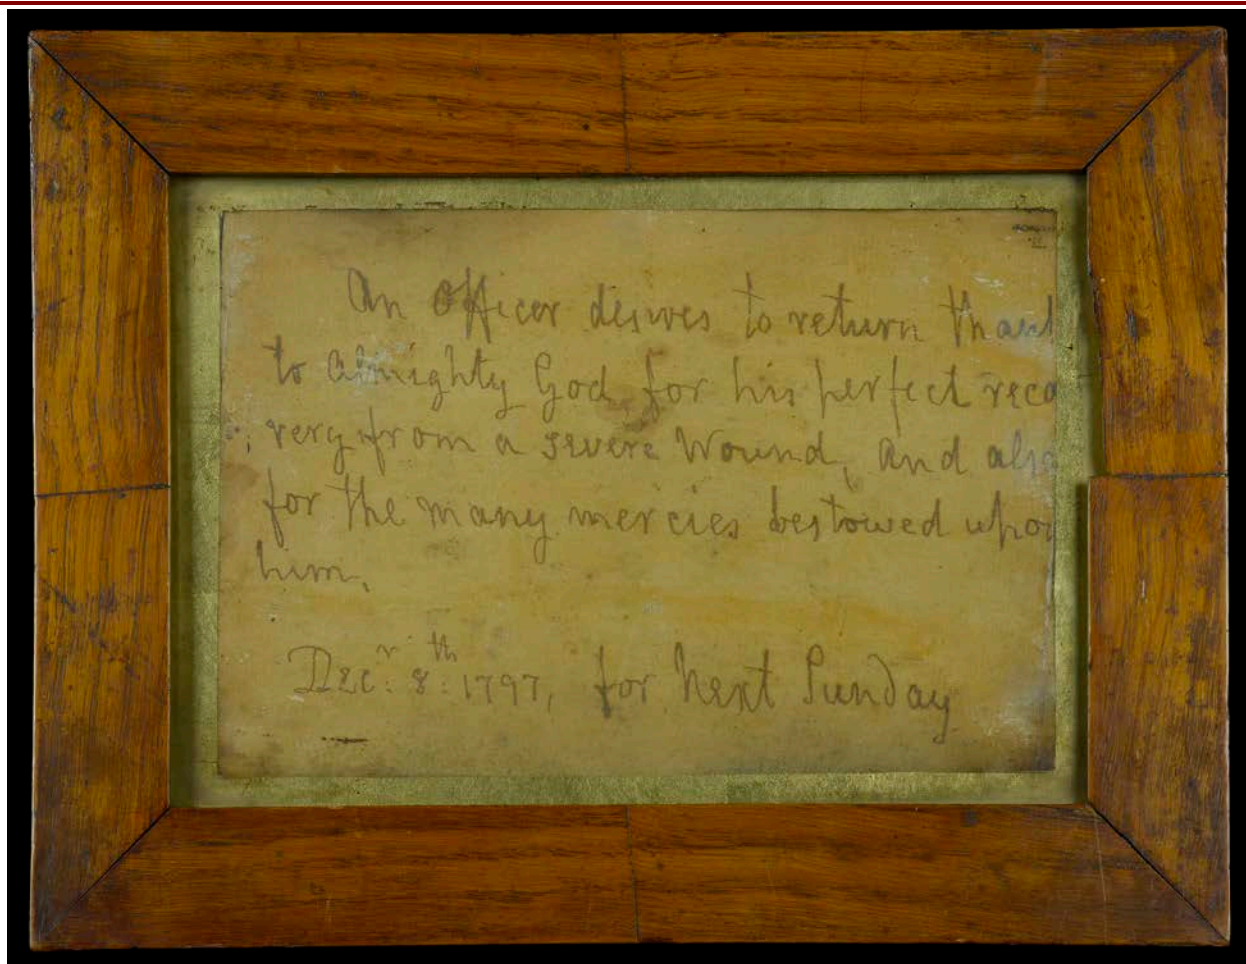 An Officer desires to return thank
to Almighty God for his perfect reco
very from a severe Wound, and also
for the many mercies bestowed upon
him.
Decr: 8th: 1797, for next Sunday